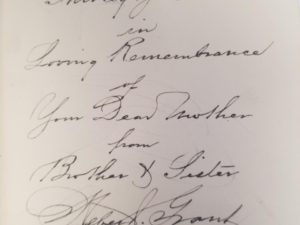 in
Loving Remembrance
of
Your Dear Mother
from
Brother & Sister
Heber J. Grant